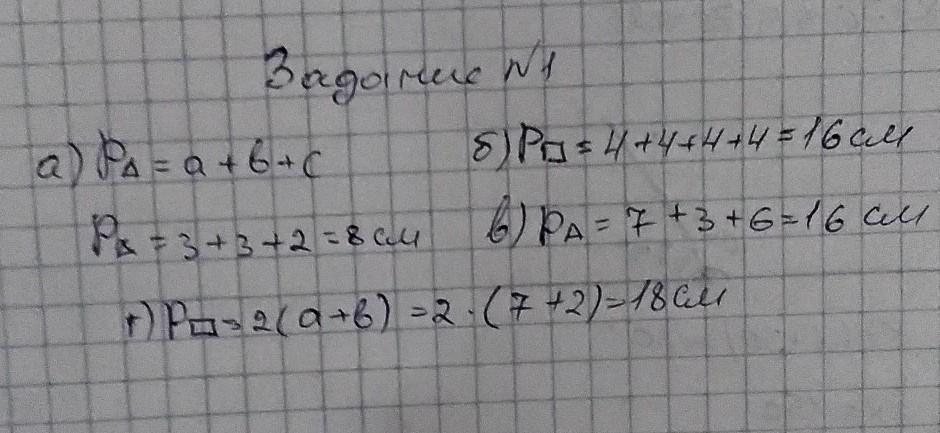 Задание №1
а) P△ = a + b + c
P△ = 3 + 3 + 2 = 8 см
б) P□ = 4 + 4 + 4 + 4 = 16 см
в) P△ = 7 + 3 + 6 = 16 см
г) P▭ = 2(a + b) = 2 · (7 + 2) = 18 см